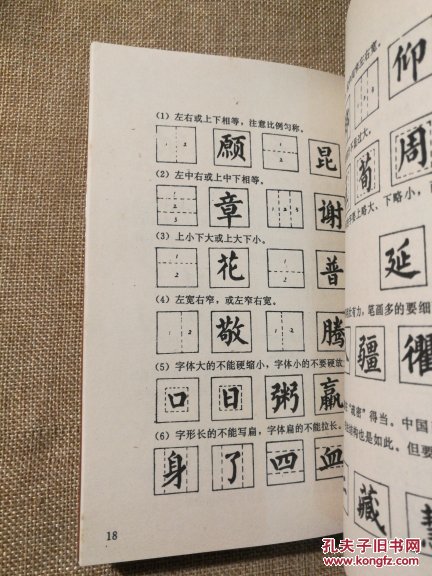 (1) 左右或上下相等，注意比例匀称。
愿 昆
(2) 左中右或上中下相等。
章 谢
(3) 上小下大或上大下小。
花 普
(4) 左宽右窄，或左窄右宽。
敬 腾
(5) 字体大的不能硬缩小，字体小的不要硬放
口 日 粥 赢
(6) 字形长的不能写扁，字体扁的不能拉长。
身 了 四 血
18
左右宽。
仰
过大。
荀 周
要上略大、下略小，
延
有力，笔画多的要细
疆 衢
"疏密"得当。中国
结构也是如此。但要
藏
孔夫子旧书网